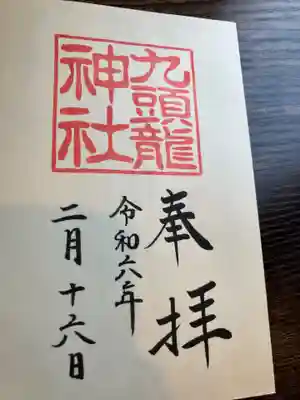 九頭龍
神社
奉拝
令和六年
二月十六日